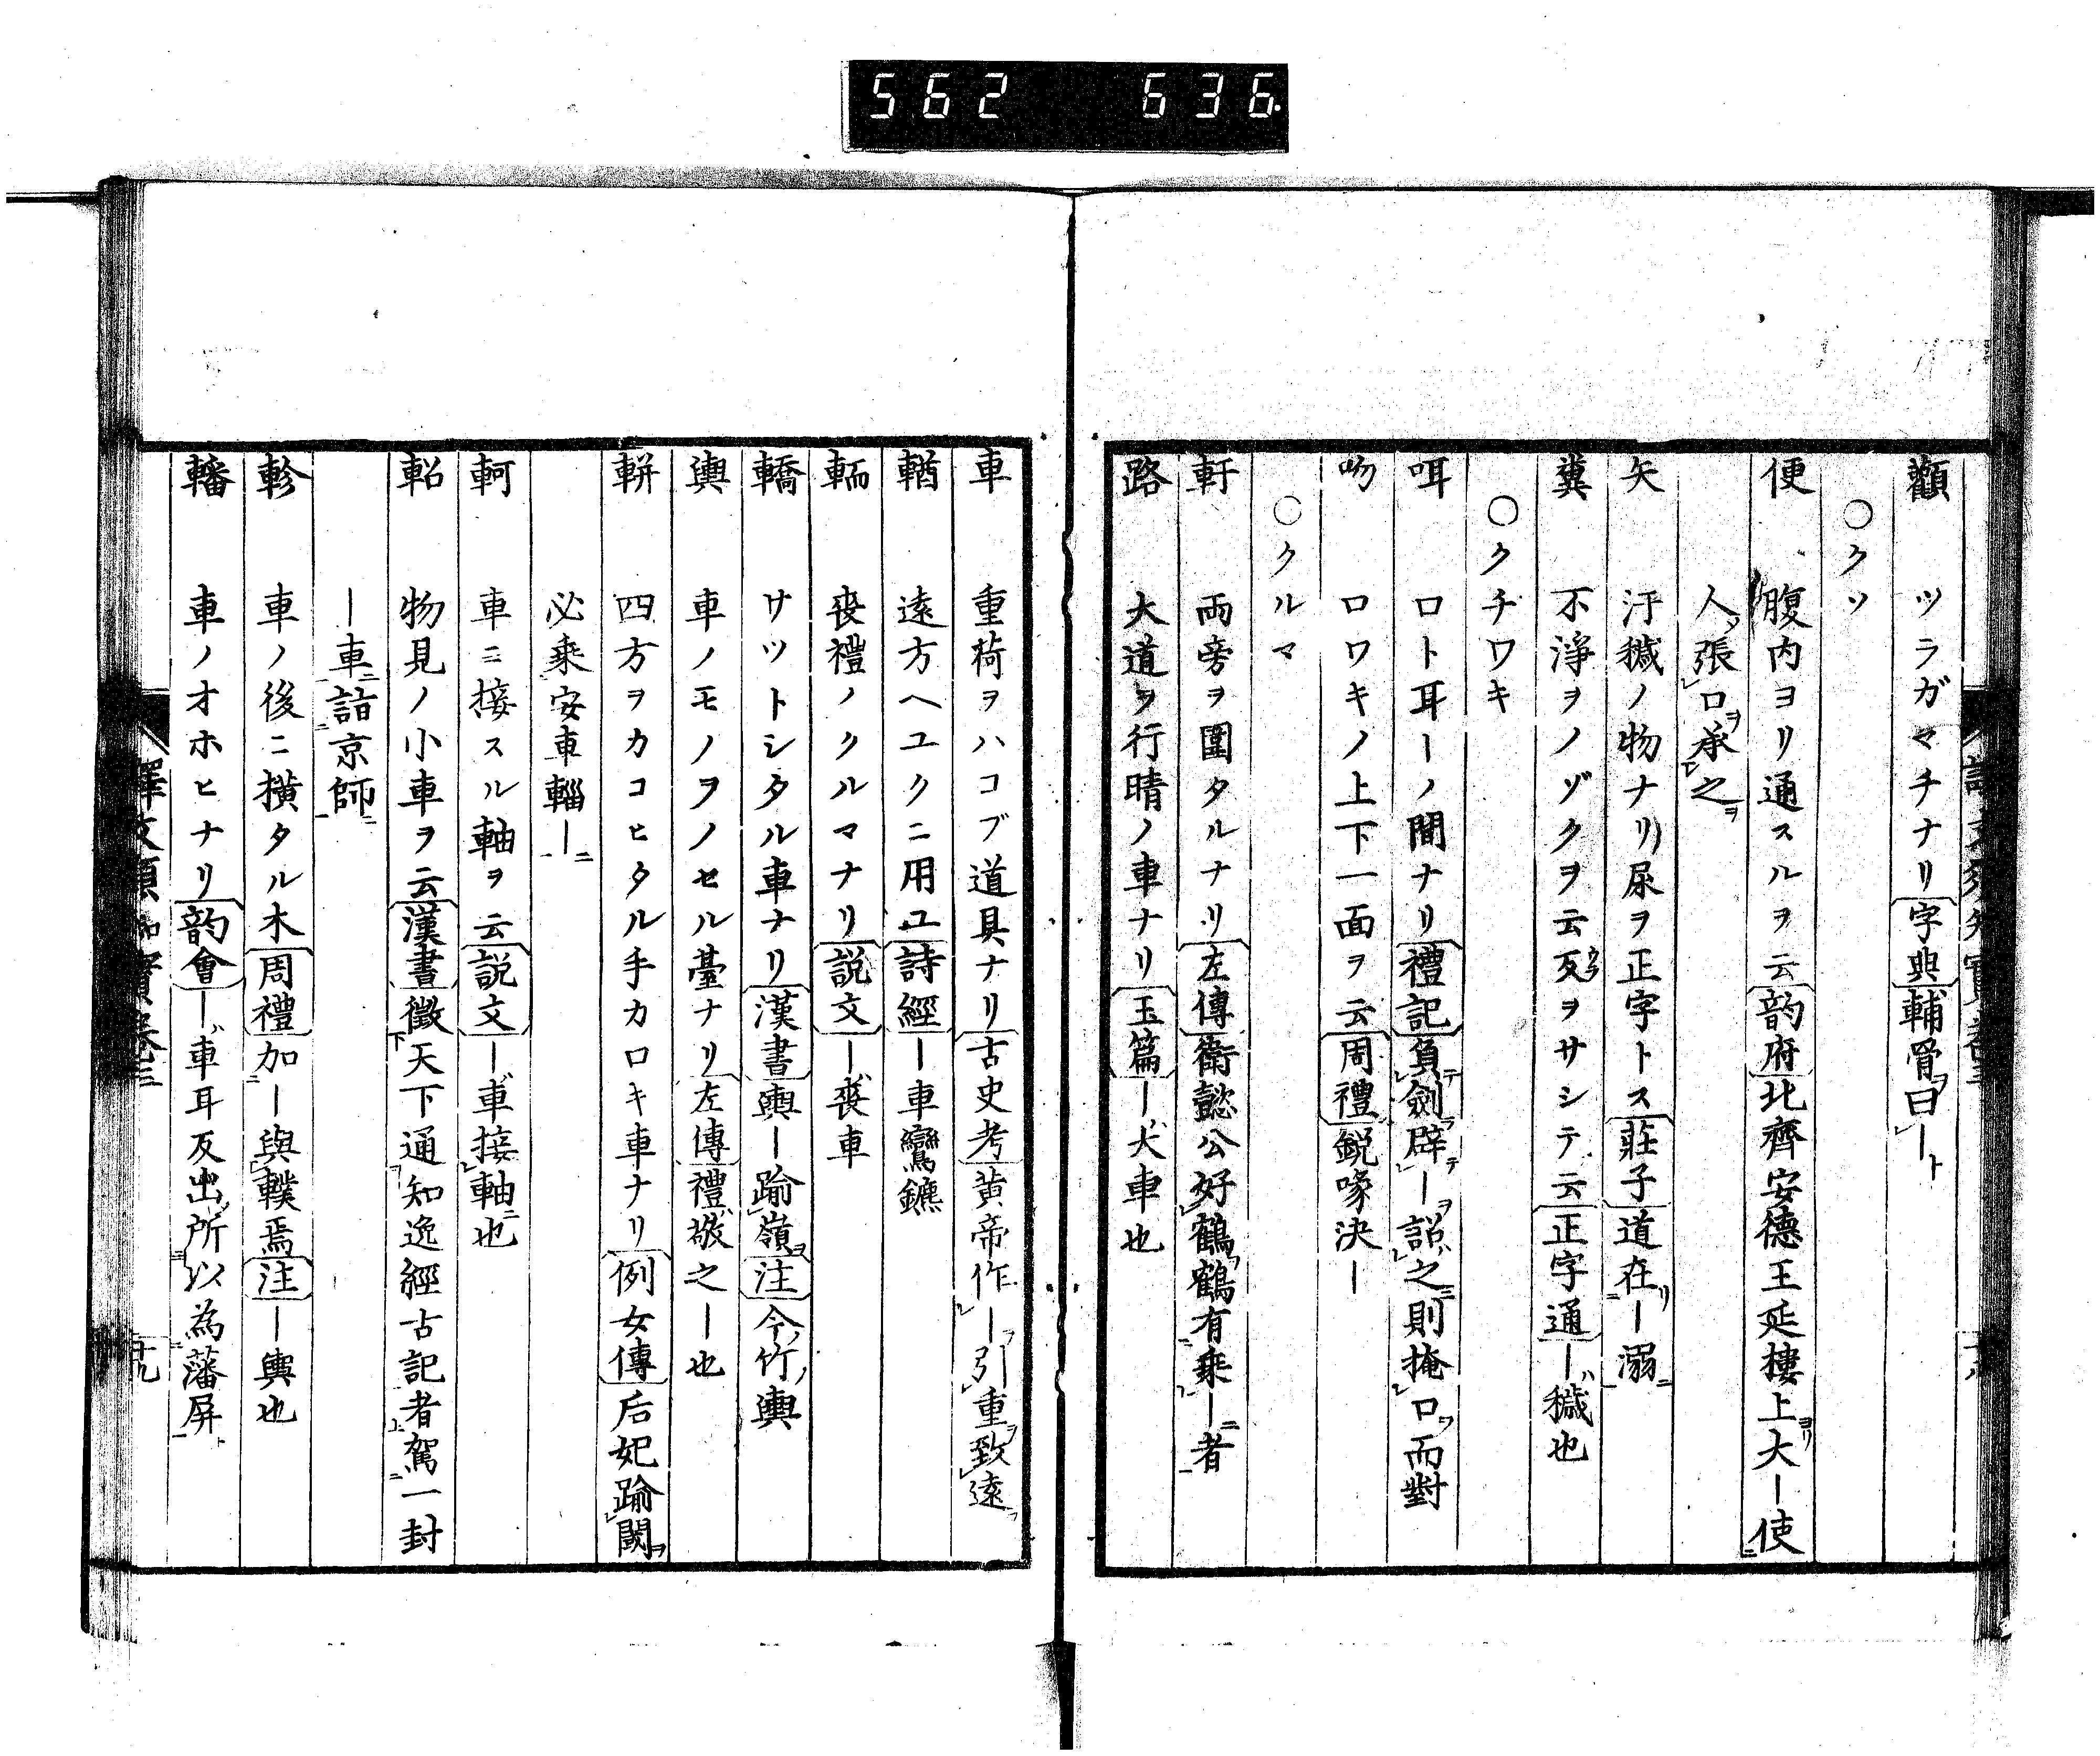 562 636.
顴 ツラガマチナリ字典輔骨曰ー
○クソ
便 腹内ヨリ通スルヲ云韵府北齊安德王延樓上大ー使
人張口承之
矢 汙穢ノ物ナリ尿ヲ正字トス莊子道在ー溺
糞 不淨ヲノゾクヲ云反ヲサシテ云正字通ー穢也
○クチワキ
咡 口ト耳ーノ間ナリ禮記負劍辟ー詔之則掩口而對
吻 口ワキノ上下一面ヲ云周禮鋭喙決ー
○クルマ
軒 両旁ヲ圍タルナリ左傳衛懿公好鶴鶴有乘ー者
路 大道ヲ行晴ノ車ナリ玉篇ー大車也
車 重荷ヲハコブ道具ナリ古史考黄帝作ー引重致遠
輶 遠方ヘユクニ用ユ詩經ー車鸞鑣
輀 喪禮ノクルマナリ説文ー喪車
轎 サツトシタル車ナリ漢書輿ー踰嶺注今竹輿
輿 車ノモノヲノセル臺ナリ左傳禮敬之ー也
輧 四方ヲカコヒタル手カロキ車ナリ例女傳后妃踰閾
必乘安車輜ー
軻 車ニ接スル軸ヲ云説文ー車接軸也
軺 物見ノ小車ヲ云漢書徴天下通知逸經古記者駕一封
ー車詣京師
軫 車ノ後ニ横タル木周禮加ー與轐焉注ー輿也
轓 車ノオホヒナリ韵會ー車耳反出所以為藩屏